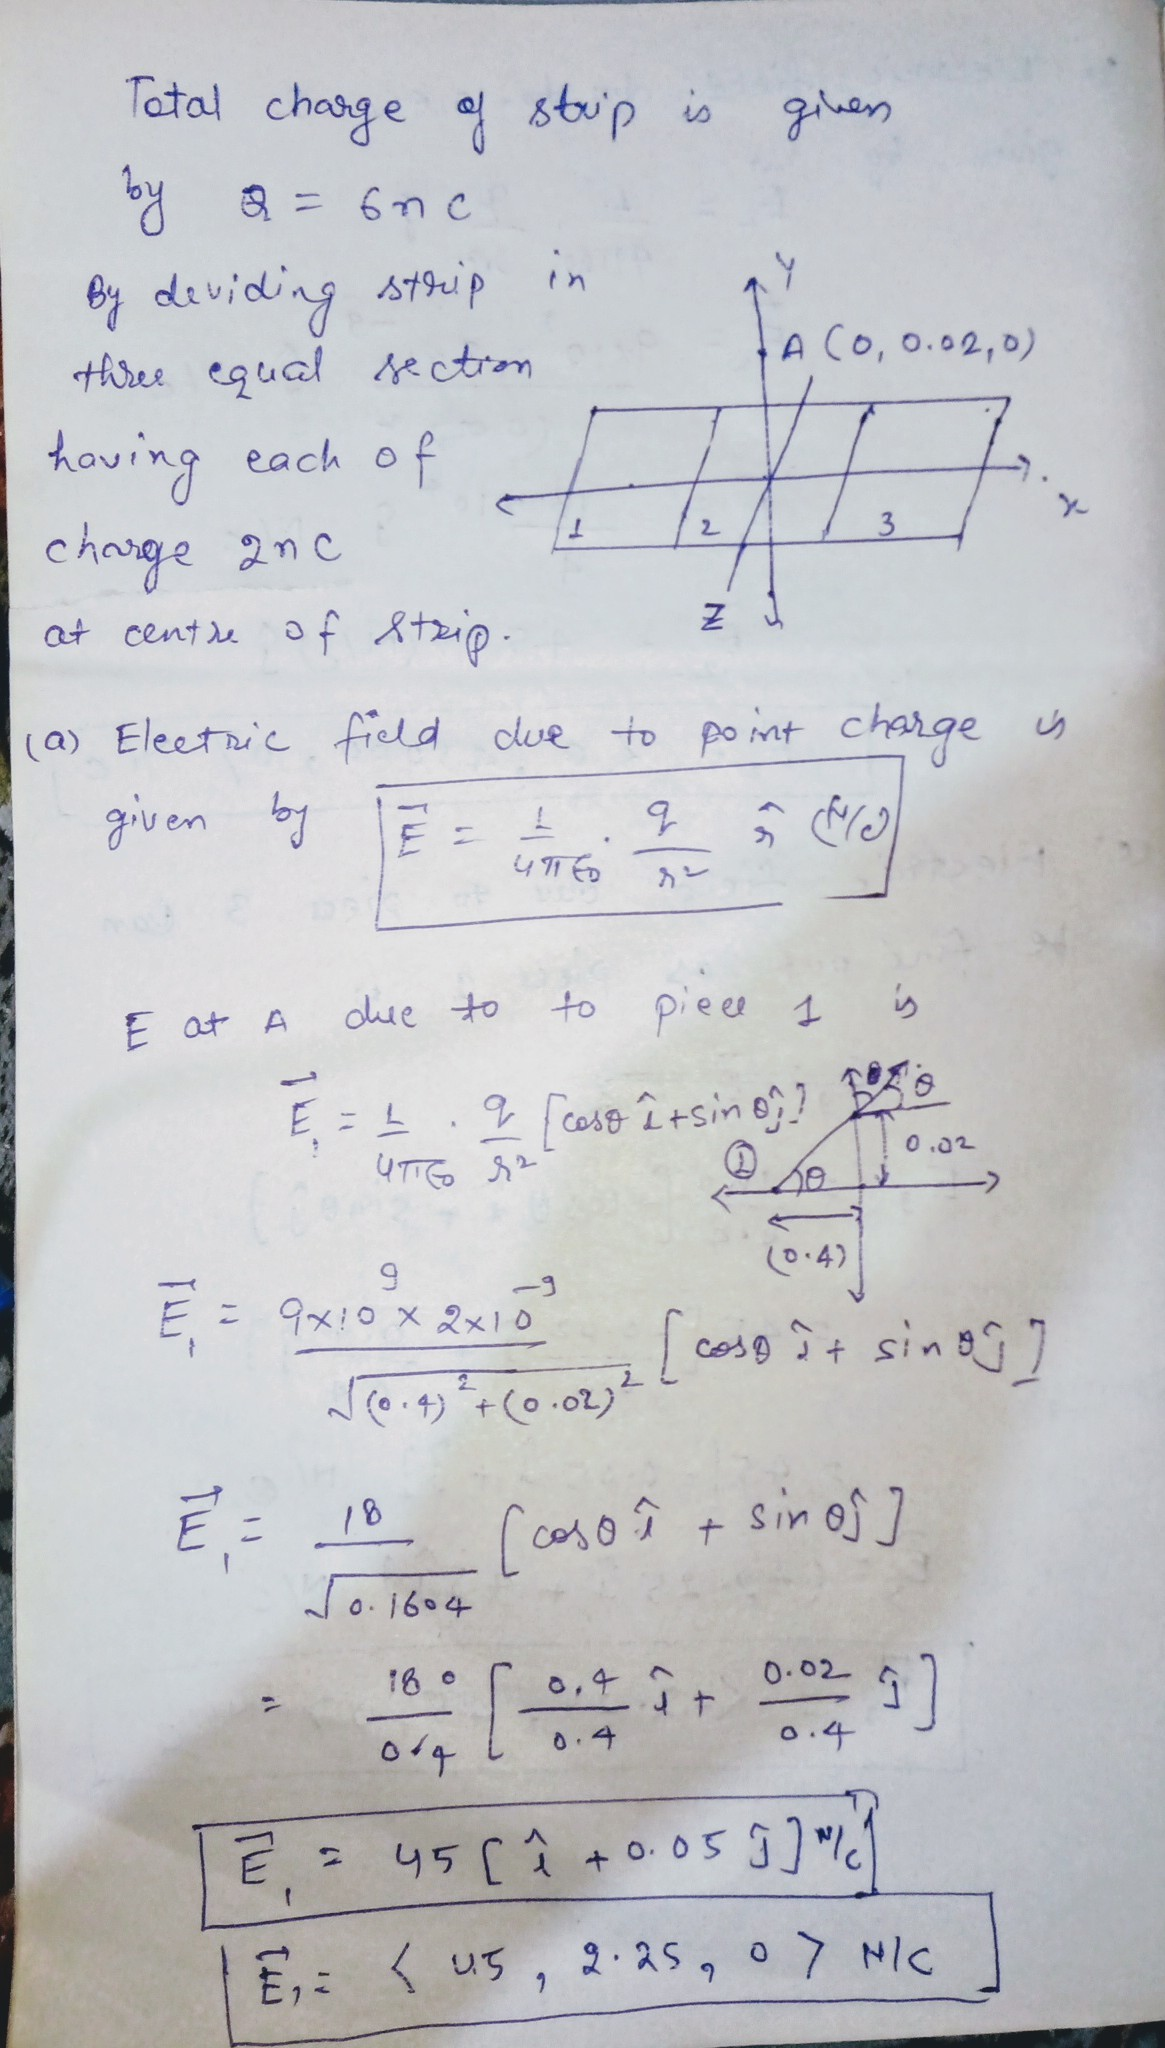 Total charge of strip is given
by Q = 6nC
By deviding strip in
three equal section
having each of
charge 2nC
at centre of strip.
Y
A (0, 0.02, 0)
x
1 2 3
Z
(a) Electric field due to point charge is
given by E⃗ = 1/4πε₀ · q/r² r̂ (N/C)
E at A due to to piece 1 is
E⃗₁ = 1/4πε₀ · q/r² [cosθ î + sinθ ĵ]
θ θ
0.02
① θ
(0.4)
E⃗₁ = 9×10⁹ × 2×10⁻⁹ / √(0.4)² + (0.02)² [cosθ î + sinθ ĵ]
E⃗₁ = 18 / √0.1604 [cosθ î + sinθ ĵ]
= 180 / 0.4 [0.4/0.4 î + 0.02/0.4 ĵ]
E⃗₁ = 45 [î + 0.05 ĵ] N/C
E⃗₁ = < 45, 2.25, 0 > N/C